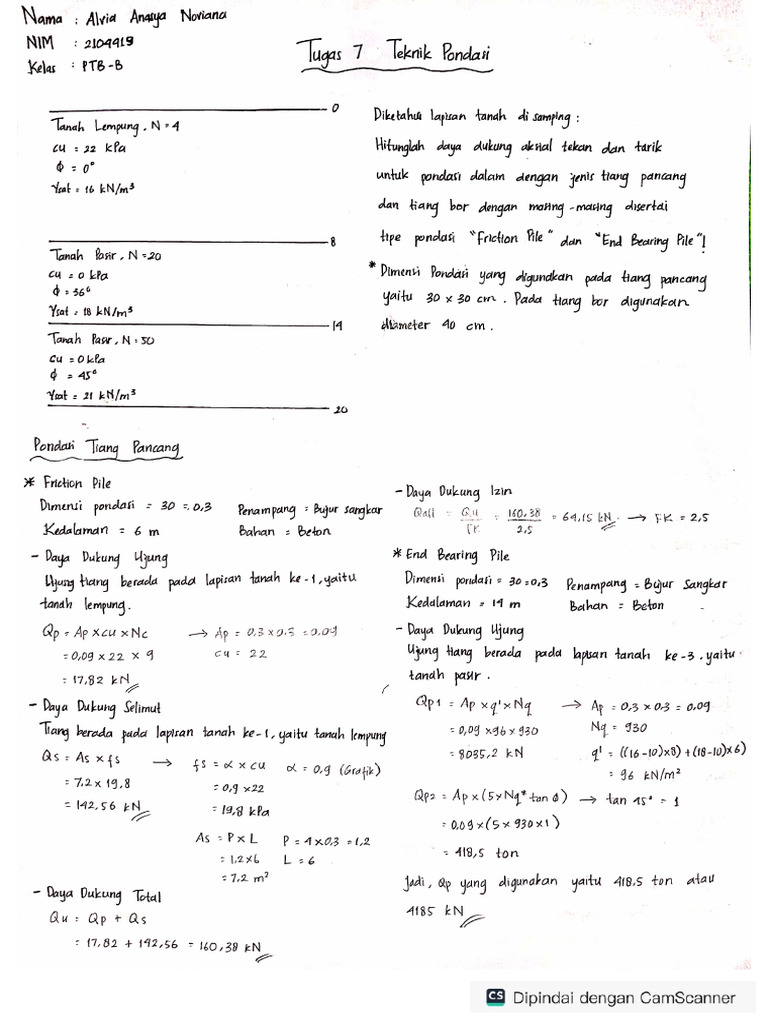 Nama : Alvia Anasya Noviana
NIM : 2104419
Kelas : PTB-B
Tugas 7 Teknik Pondasi
0
Tanah Lempung, N = 4
cu = 22 kPa
ϕ = 0°
γsat = 16 kN/m³
8
Tanah Pasir, N = 20
cu = 0 kPa
ϕ = 36°
γsat = 18 kN/m³
14
Tanah Pasir, N = 50
cu = 0 kPa
ϕ = 45°
γsat = 21 kN/m³
20
Diketahui lapisan tanah di samping :
Hitunglah daya dukung aksial tekan dan tarik
untuk pondasi dalam dengan jenis tiang pancang
dan tiang bor dengan masing-masing disertai
tipe pondasi "Friction Pile" dan "End Bearing Pile"!
* Dimensi Pondasi yang digunakan pada tiang pancang
yaitu 30 x 30 cm. Pada tiang bor digunakan
diameter 40 cm.
Pondasi Tiang Pancang
* Friction Pile
Dimensi pondasi = 30 = 0,3 Penampang = Bujur sangkar
Kedalaman = 6 m Bahan = Beton
- Daya Dukung Ujung
Ujung tiang berada pada lapisan tanah ke-1, yaitu
tanah lempung.
Qp = Ap x cu x Nc → Ap = 0,3 x 0,3 = 0,09
= 0,09 x 22 x 9 cu = 22
= 17,82 kN
- Daya Dukung Selimut
Tiang berada pada lapisan tanah ke-1, yaitu tanah lempung
Qs = As x fs → fs = α x cu α = 0,9 (Grafik)
= 7,2 x 19,8 = 0,9 x 22
= 142,56 kN = 19,8 kPa
As = P x L P = 4 x 0,3 = 1,2
= 1,2 x 6 L = 6
= 7,2 m²
- Daya Dukung Total
Qu = Qp + Qs
= 17,82 + 142,56 = 160,38 kN
- Daya Dukung Izin
Qall = Qu/FK = 160,38/2,5 = 64,15 kN → FK = 2,5
* End Bearing Pile
Dimensi pondasi = 30 = 0,3 Penampang = Bujur Sangkar
Kedalaman = 14 m Bahan = Beton
- Daya Dukung Ujung
Ujung tiang berada pada lapisan tanah ke-3, yaitu
tanah pasir.
Qp1 = Ap x q' x Nq → Ap = 0,3 x 0,3 = 0,09
= 0,09 x 96 x 930 Nq = 930
= 8035,2 kN q' = ((16-10)x8) + (18-10)x6)
= 96 kN/m²
Qp2 = Ap x (5 x Nq* tan ϕ) → tan 45° = 1
= 0,09 x (5 x 930 x 1)
= 418,5 ton
Jadi, Qp yang digunakan yaitu 418,5 ton atau
4185 kN
CS Dipindai dengan CamScanner